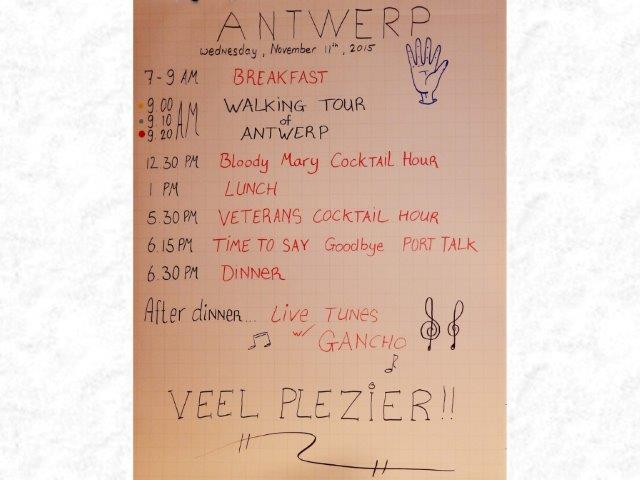 ANTWERP
Wednesday, November 11th, 2015
7-9 AM BREAKFAST
9.00
9.10 AM WALKING TOUR
of
9.20 ANTWERP
12.30 PM Bloody Mary Cocktail Hour
1 PM LUNCH
5.30 PM VETERANS COCKTAIL HOUR
6.15 PM TIME TO SAY Goodbye PORT TALK
6.30 PM DINNER
After dinner... Live TUNES
w/ GANCHO
VEEL PLEZIER!!